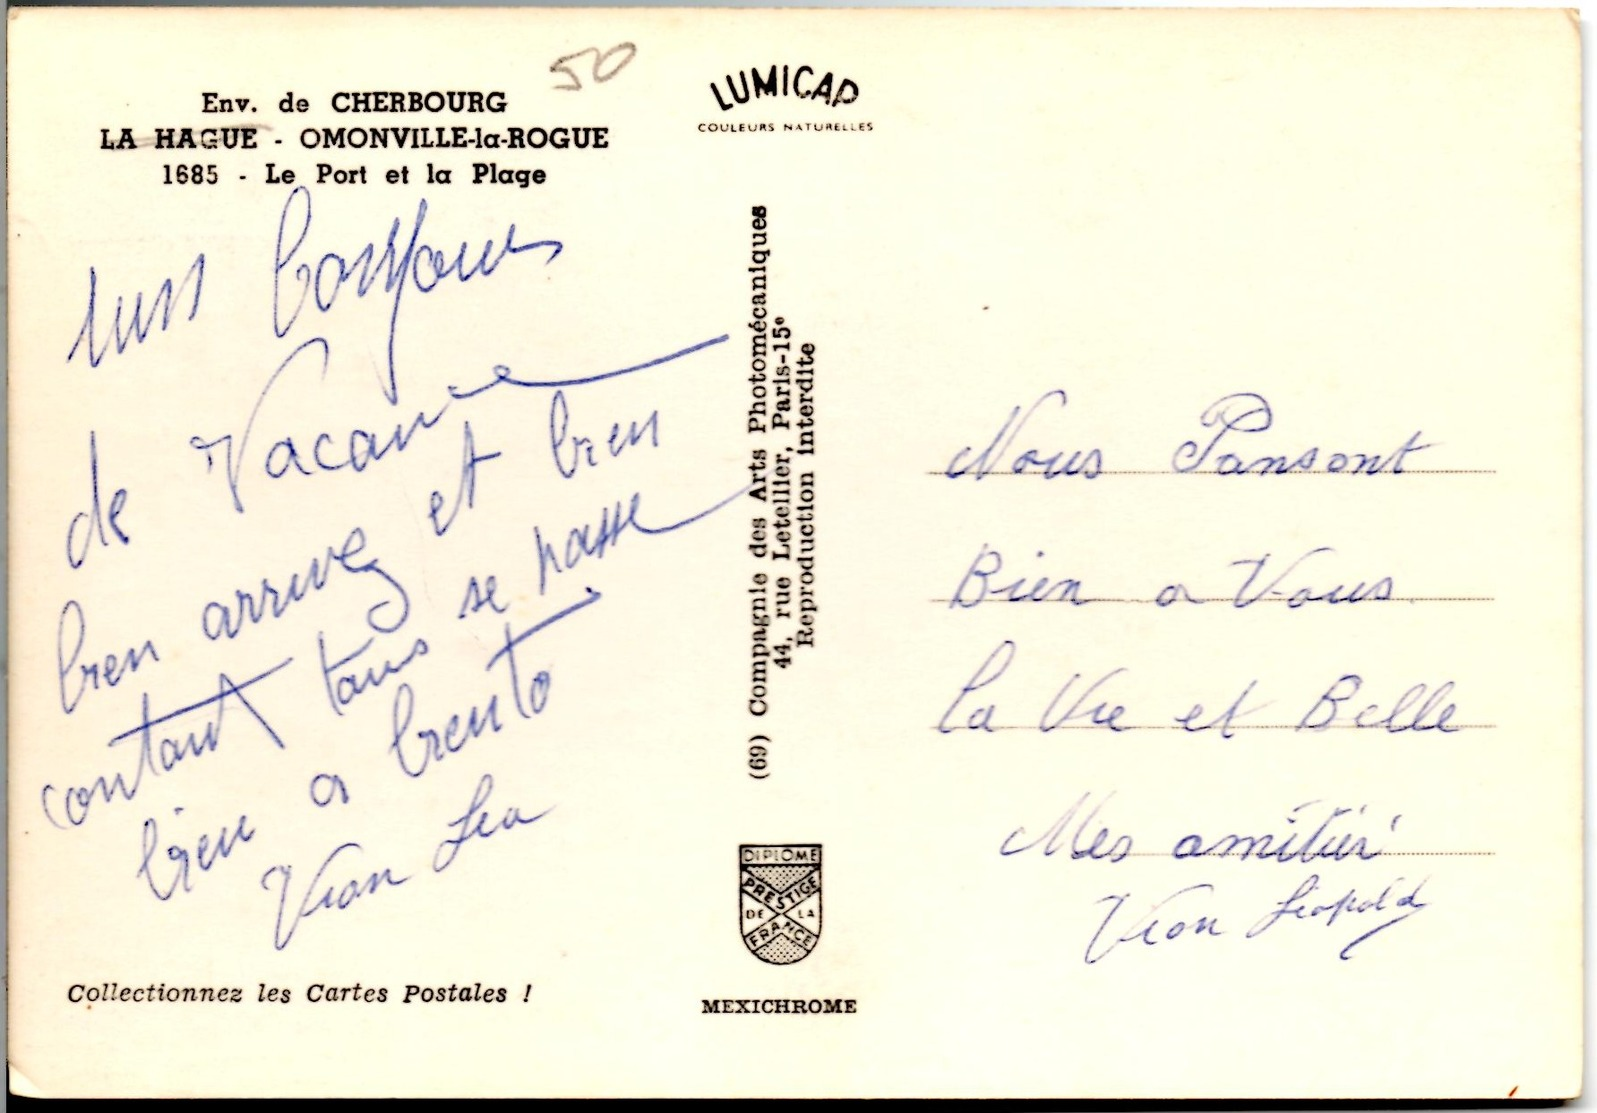 50
Env. de CHERBOURG
LA HAGUE - OMONVILLE-la-ROGUE
1685 - Le Port et la Plage
de Vacance
bien arrivez et bien
contant tous se passe
bien a biento
Vion Lea
Collectionnez les Cartes Postales !
LUMICAP
COULEURS NATURELLES
(69) Compagnie des Arts Photomécaniques
44, rue Letellier, Paris-15e
Reproduction interdite
DIPLOME
PRESTIGE
DE LA
FRANCE
MEXICHROME
Nous Pansont
Bien a Vous
la Vie et Belle
Mes amitiér
Vion Léopold